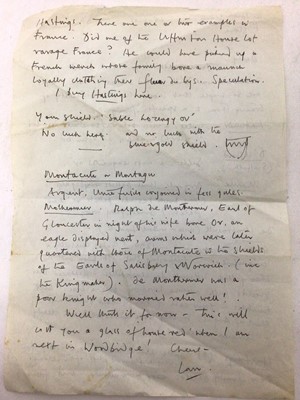 Hastings. There are one or two examples in
France. Did one of the Uffington House lot
ravage France? He could have picked up a
French wench whose family bore a maunce
loyally clutching their fleur de lys. Speculation.
I deny Hastings here.
Your shield. Sable lozengy or
No luck here. and no luck with the
blue + gold shield.
Montacute or Montagu
Argent, three fusils conjoined in fess gules.
Monthermer. Ralph de Monthermer, Earl of
Gloucester in right of his wife bore Or, an
eagle displayed vert, arms which were later
quartered with those of Montacute in the shields
of the Earls of Salisbury & Warwick (inc
the Kingmaker). de Monthermer was a
poor knight who married rather well!
Well that's it for now - This will
cost you a glass of house red when I am
next in Woodbridge! Cheers -